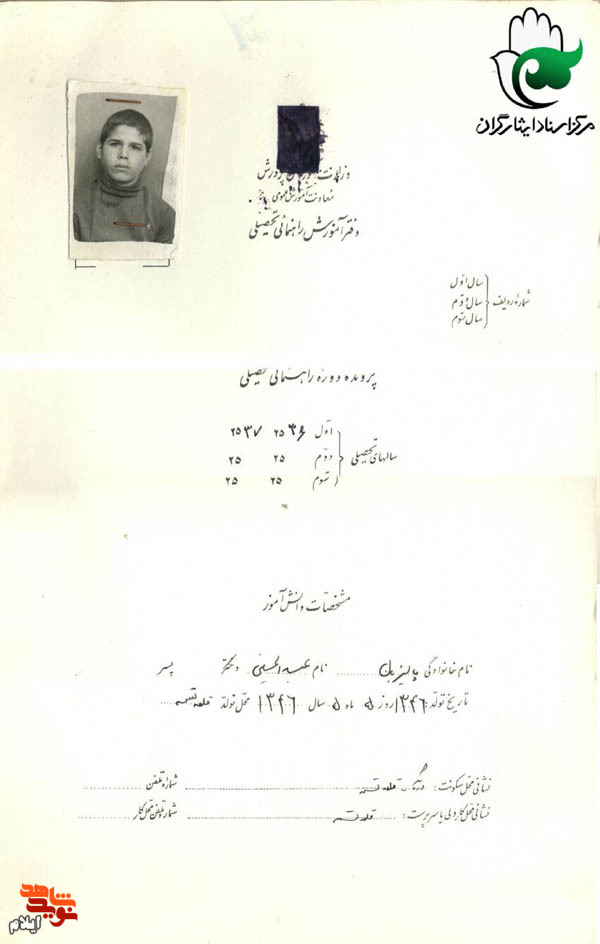 مرکز اسناد ایثارگران
وزارت آموزش و پرورش
معاونت آموزش عمومی
دفتر آموزش راهنمائی تحصیلی
شماره ردیف
سال اول
سال دوم
سال سوم
پرونده دوره راهنمائی تحصیلی
سالهای تحصیلی
اول ۲۵۳۶ ۲۵۳۷
دوم ۲۵ ۲۵
سوم ۲۵ ۲۵
مشخصات دانش آموز
نام خانوادگی پالیزبان نام عبدالحسین دختر پسر
تاریخ تولد: ۱۳۴۶ روز ۵ ماه ۵ سال ۱۳۴۶ محل تولد قلعه تسمه
نشانی محل سکونت: قلعه تسمه شماره تلفن
نشانی محل کار ولی یا سرپرست: قلعه تسمه شماره تلفن محل کار
نوید شاهد
ایلام